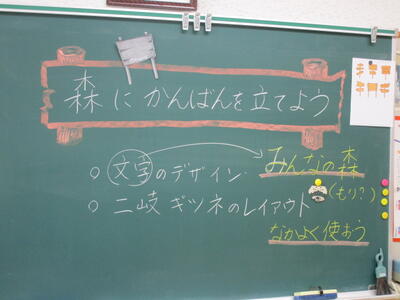 森にかんばんを立てよう
○ 文字のデザイン
みんなの森
(もり?)
○ 二岐ギツネのレイアウト
なかよく使おう